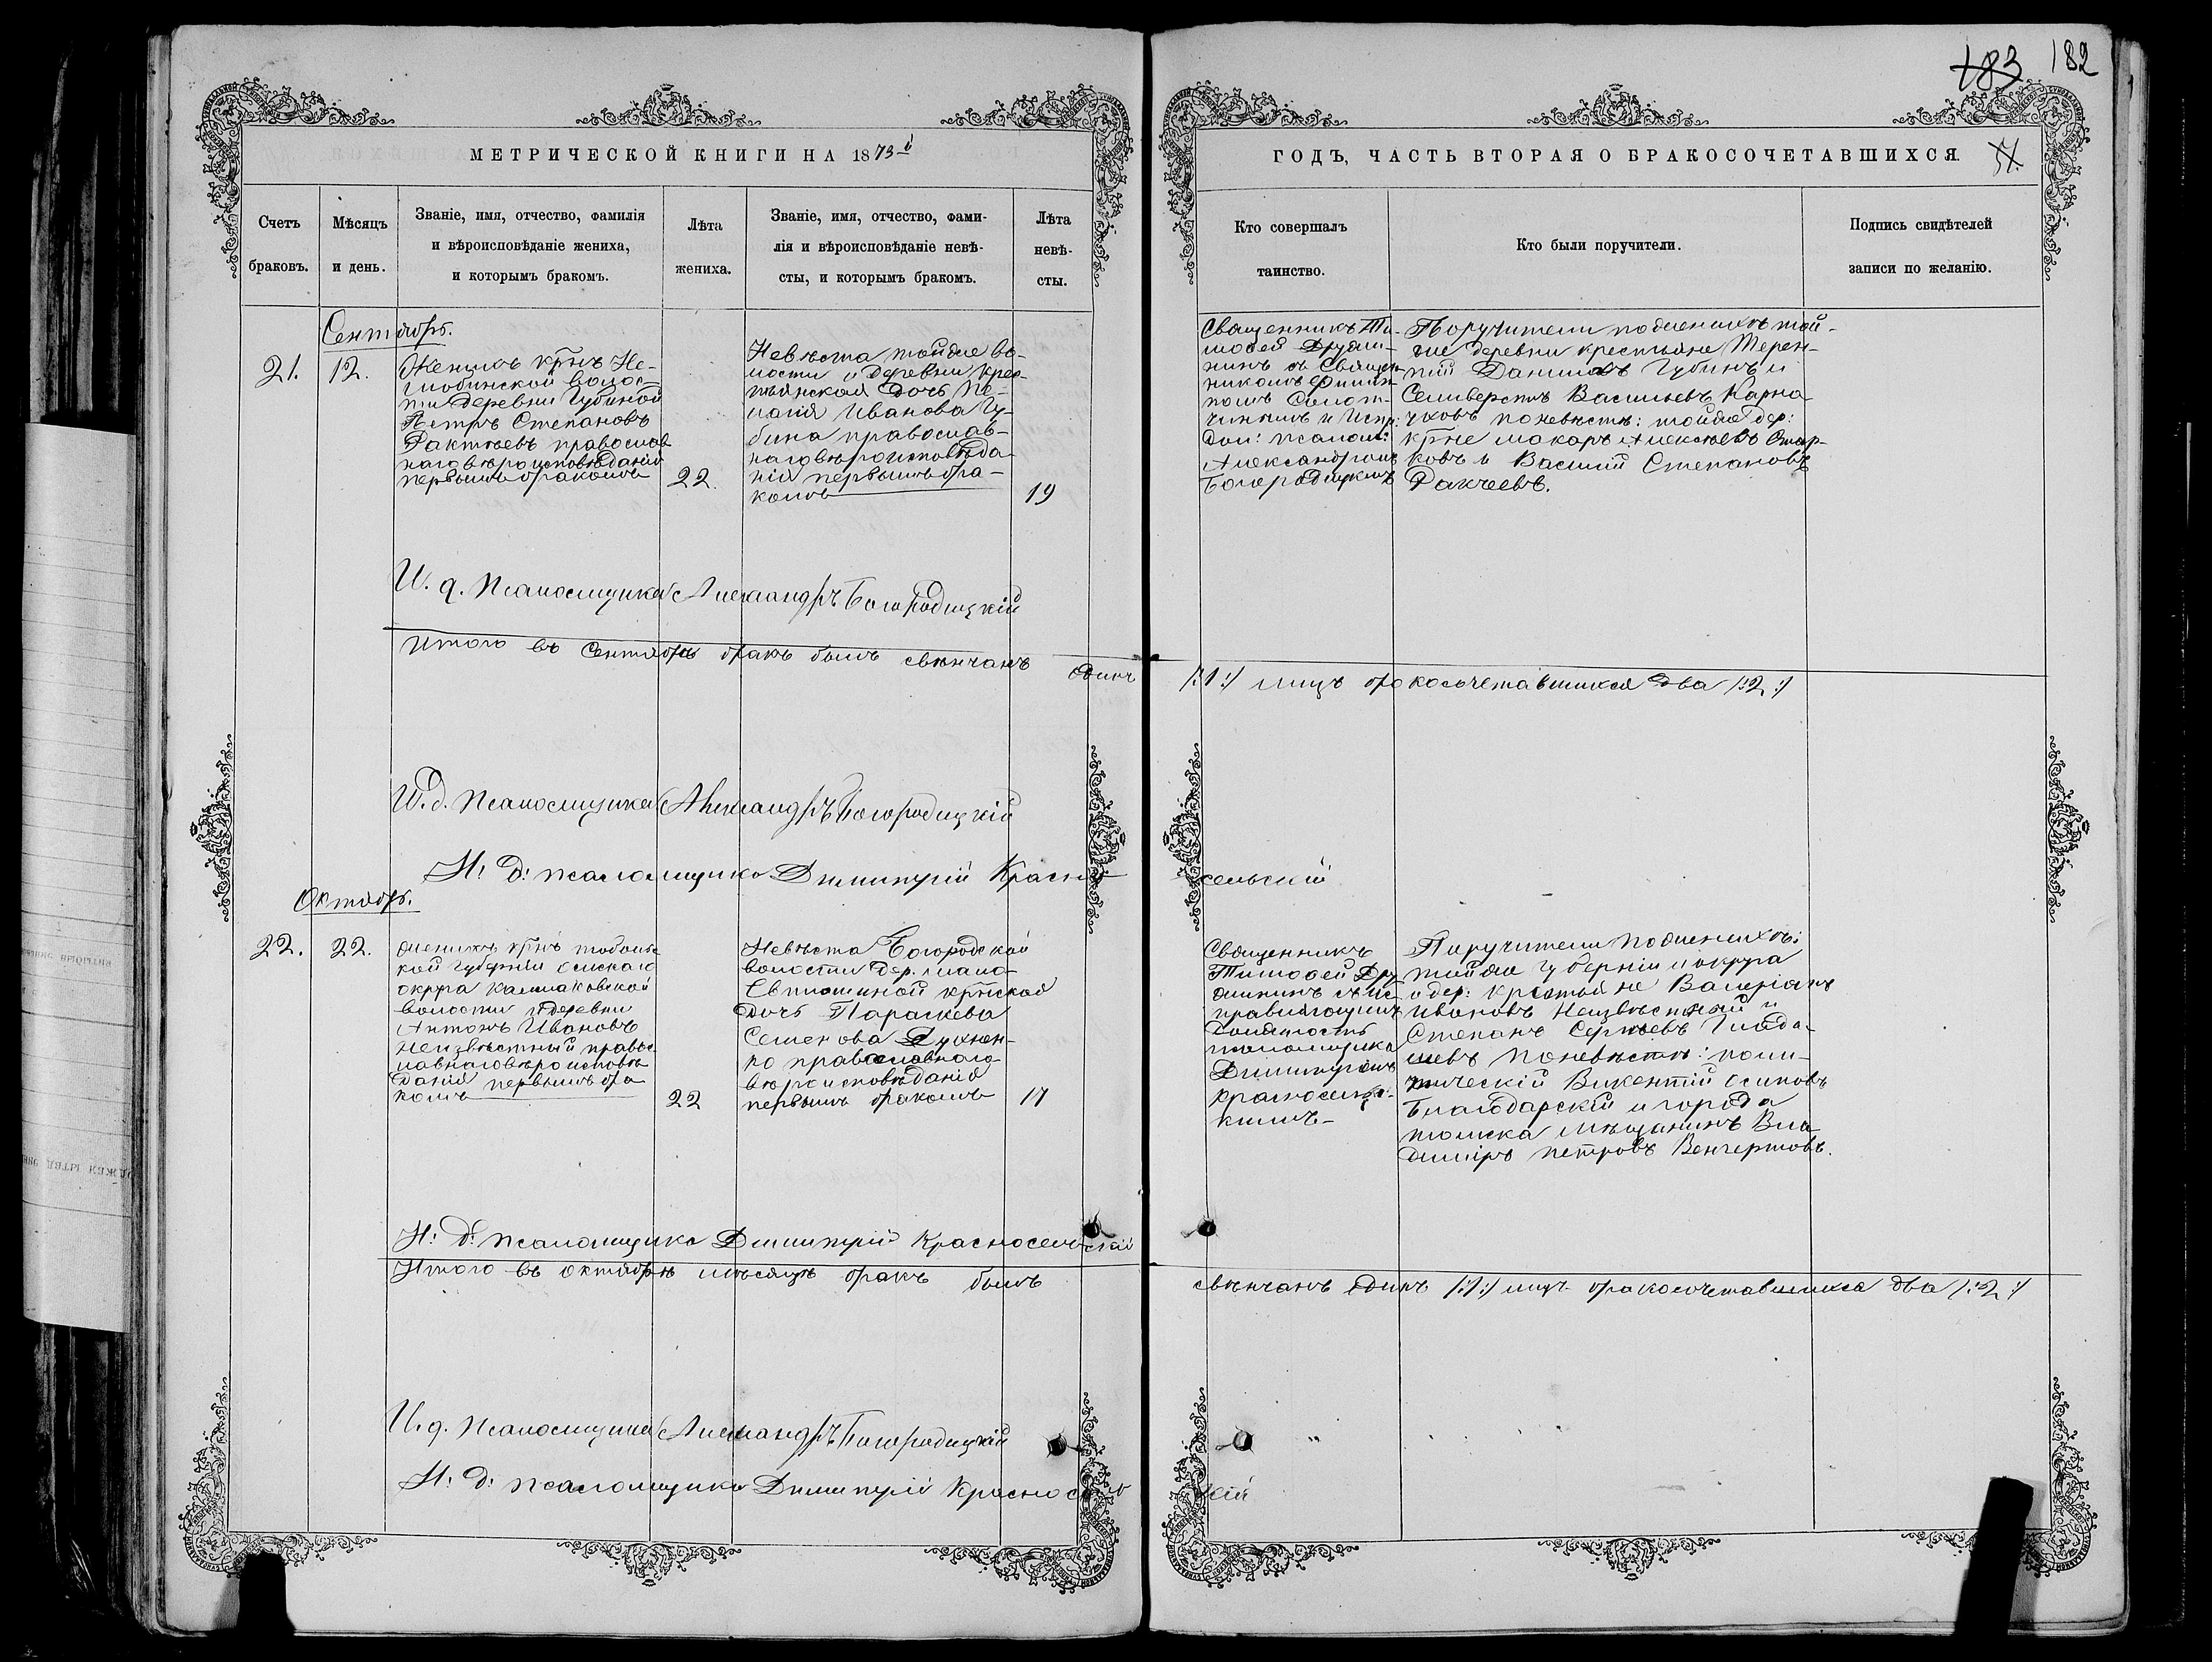 183 182
МЕТРИЧЕСКОЙ КНИГИ НА 1873-й
ГОДЪ, ЧАСТЬ ВТОРАЯ О БРАКОСОЧЕТАВШИХСЯ.
Счетъ
браковъ.
Мѣсяцъ
и день.
Званіе, имя, отчество, фамилія
и вѣроисповѣданіе жениха,
и которымъ бракомъ.
Лѣта
жениха.
Званіе, имя, отчество, фами-
лія и вѣроисповѣданіе невѣ-
сты, и которымъ бракомъ.
Лѣта
невѣ-
сты.
Кто совершалъ
таинство.
Кто были поручители.
Подпись свидѣтелей
записи по желанію.
Сентябрь.
21.
12.
Женихъ крнъ Не-
любинской волос-
ти деревни Губиной
Петръ Степановъ
Рактѣевъ православ
наго вѣроисповѣданія
первымъ бракомъ
22.
Невѣста тойже во-
лости и деревни крес-
тьянская дочь Пе-
лагія Иванова Гу-
бина православ-
наго вѣроисповѣда-
нія первымъ бра-
комъ
19
Священникъ Ти-
мофей Друж-
нинъ съ Священ-
никомъ
и Испр:
дол: псалом:
Александромъ
Богородицкимъ
Поручители по женихѣ той-
же деревни крестьяне Терен-
тій Даниловъ Губинъ и
Селиверстъ Васильевъ Карна
уховъ по невѣстѣ: тойже дер:
крне Макаръ Алексѣевъ
и Василій Степановъ
Ракчеевъ.
И. д. Псаломщика Александръ Богородицкій
Итого въ Сентябрѣ бракъ былъ свѣнчанъ Одинъ
/:1:/ лицъ бракосочетавшихся два /:2:/
И. д. Псаломщика Александръ Богородицкій
И: д: псаломщика Димитрій Красно
сельскій
Октябрь.
22.
22.
женихъ крнъ тобольс
кой губерніи Омскаго
округа Калмаковской
волости и деревни
Антонъ Ивановъ
Неизвѣстный правос
лавнаго вѣроисповѣ
данія первымъ бра
комъ
22
Невѣста Богородской
волости дер. мало-
Евтюшиной крнская
дочь Параскева
Семенова
православнаго
вѣроисповѣданія
первымъ бракомъ
17
Священникъ
Тимофей Дру
жининъ съ ис-
правляющимъ
должность
псаломщика
Димитріемъ
Красносельс-
кимъ
Поручители по женихѣ:
тойже губерніи и округа
и дер: крестьяне Валеріанъ
Ивановъ Неизвѣстный и
Степанъ Сергѣевъ Глада-
шевъ по невѣстѣ: поли-
тическій Викентій Осиповъ
Благодарскій и города
томска мѣщанинъ Вла
диміръ Петровъ Венгертовъ.
И: д: псаломщика Димитрій Красносельскій
Итого въ октябрѣ мѣсяцѣ бракъ былъ
свѣнчанъ одинъ /:1:/ лицъ бракосочетавшихся два /:2:/
И. д. Псаломщика Александръ Богородицкій
И: д: псаломщика Димитрій Красносель
скій